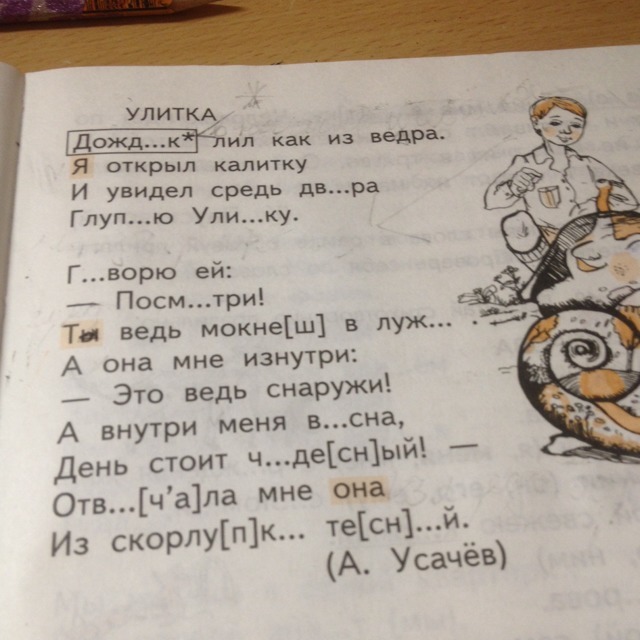 УЛИТКА
Дожд...к* лил как из ведра.
Я открыл калитку
И увидел средь дв...ра
Глуп...ю Ули...ку.
Г...ворю ей:
— Посм...три!
Ты ведь мокне[ш] в луж... .
А она мне изнутри:
— Это ведь снаружи!
А внутри меня в...сна,
День стоит ч...де[сн]ый! —
Отв...[ч'а]ла мне она
Из скорлу[п]к... те[сн]...й.
(А. Усачёв)